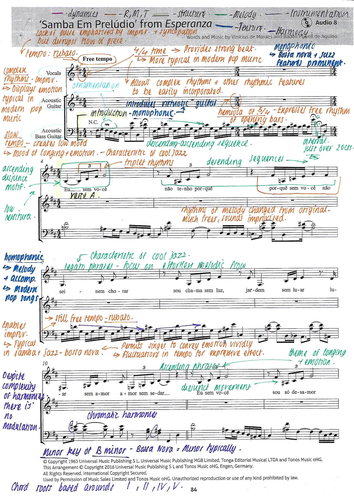 = dynamics = R,M,T = structure = Melody = Instrumentation
'Samba Em Prelúdio' from Esperanza
Audio 8
= Texture = Harmony
Words and Music by Vinicius de Moraes and
tempo: rubato.
Free tempo
4/4 time → Provides strong beat.
→ More typical in modern pop music
monophonic
→ Bossa nova + Jazz
Features prominent.
complex
rhythms - improv.
→ Displays emotion
typical in
modern
pop
music
Vocals
ornamentation
Allows complex rhythms + other rhythmic features
to be easily incorporated.
Acoustic
Guitar
introduces virtuosic guitar
introduction - monophonic.
Expresses free rhythm
of opening bars.
N.C.
Acoustic
Bass Guitar
slow
tempo → creates low mood
descending-ascending sequence.
interval
just over 2 octaves
→ Mood of longing + emotion - characteristic of cool Jazz
triplet rhythms
descending sequences
ascending
sequence
motif.
Eu sem você não te-nho por-quê por-quê sem vo-cê não
Verse A
low
tessitura.
rhythms of melody changed from original -
much freer, sounds improvised.
homophonic
→ Melody
+ Accomp.
→ Modern
pop songs
characteristic of cool Jazz.
legato phrases - focus on effortless melodic flow
sei nem cho-rar sou cha-ma sem luz, jar-dim sem lu-ar lu-
Enables
improv.
→ typical
in samba + Jazz - bossa nova
→ still free tempo - rubato.
→ Permits singer to convey emotion vividly
→ Fluctuations in tempo for expressive effect.
theme of longing
+ emotion.
Ascending phrases
Despite
complexity
of harmony
there is
no
modulation.
descending movement
ar sem a-mor a-mor sem se dar. Eu sem vo-cê sou só de-sa-mor
chromatic harmonies
minor key of B minor - Bossa Nova = Minor typically.
© Copyright 1963 Universal Music Publishing S L and Universal Music Publishing MGB Limited, Tonga Editorial Musical LTDA and Tonos Music oHG.
This Arrangement © Copyright 2016 Universal Music Publishing S L and Tonos Music oHG, Engen, Germany.
All Rights Reserved. International Copyright Secured.
Used by Permission of Music Sales Limited and Tonos Music oHG. Unauthorized reproduction or use of any kind prohibited by law.
84
Chord roots based around I, II, IV, V.